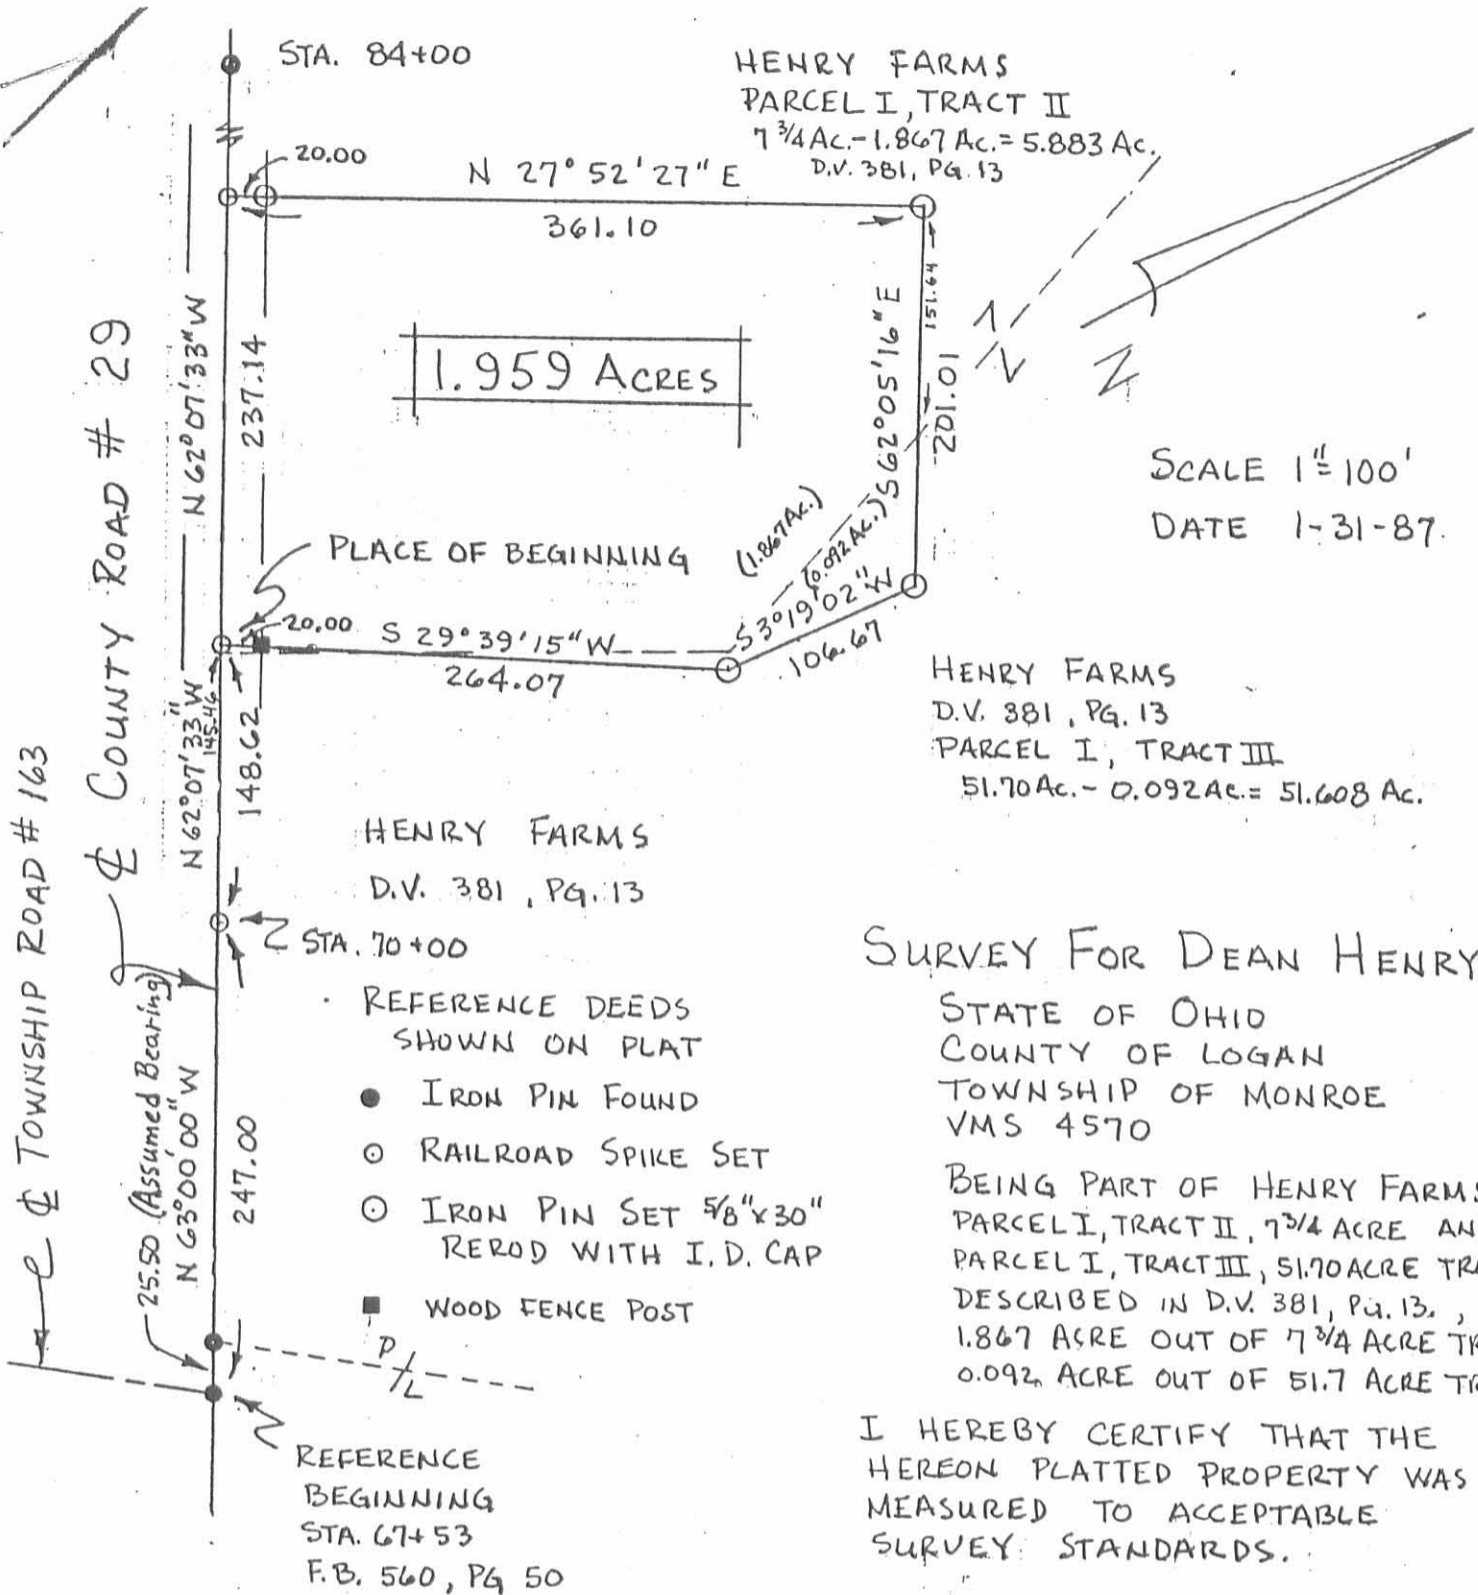 STA. 84+00
HENRY FARMS
PARCEL I, TRACT II
7 3/4 Ac.-1.867 Ac.= 5.883 Ac.
D.V. 381, PG. 13
20.00
N 27° 52' 27" E
361.10
N 62° 07' 33" W
237.14
1.959 ACRES
S 62° 05' 16" E
151.64
201.01
N
SCALE 1"= 100'
DATE 1-31-87.
℄ COUNTY ROAD # 29
PLACE OF BEGINNING
(1.867 Ac.)
(0.092 Ac.)
20.00
S 29° 39' 15" W
264.07
S 3° 19' 02" W
106.67
HENRY FARMS
D.V. 381, PG. 13
PARCEL I, TRACT III
51.70 Ac.- 0.092 Ac.= 51.608 Ac.
N 62° 07' 33" W
145.46
148.62
HENRY FARMS
D.V. 381, PG. 13
STA. 70+00
℄ TOWNSHIP ROAD # 163
25.50 (Assumed Bearing)
N 63° 00' 00" W
247.00
REFERENCE DEEDS
SHOWN ON PLAT
IRON PIN FOUND
RAILROAD SPIKE SET
IRON PIN SET 5/8" x 30"
REROD WITH I.D. CAP
WOOD FENCE POST
P/L
REFERENCE
BEGINNING
STA. 67+53
F.B. 560, PG 50
SURVEY FOR DEAN HENRY
STATE OF OHIO
COUNTY OF LOGAN
TOWNSHIP OF MONROE
VMS 4570
BEING PART OF HENRY FARMS
PARCEL I, TRACT II, 7 3/4 ACRE AN
PARCEL I, TRACT III, 51.70 ACRE TRA
DESCRIBED IN D.V. 381, PG. 13.,
1.867 ACRE OUT OF 7 3/4 ACRE TR
0.092 ACRE OUT OF 51.7 ACRE TR
I HEREBY CERTIFY THAT THE
HEREON PLATTED PROPERTY WAS
MEASURED TO ACCEPTABLE
SURVEY STANDARDS.